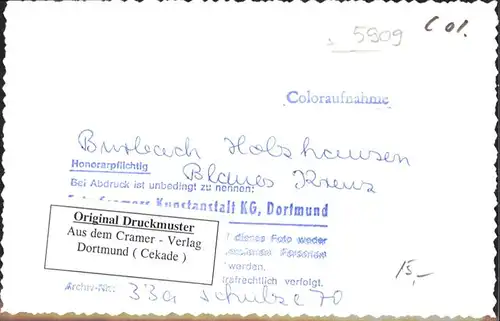 5909
Col.
Coloraufnahme
Burbach Holzhausen
Honorarpflichtig
Blaues Kreuz
Bei Abdruck ist unbedingt zu nennen:
Cramers Kunstanstalt KG, Dortmund
Original Druckmuster
Aus dem Cramer - Verlag
Dortmund ( Cekade )
dieses Foto weder
Personen
werden.
strafrechtlich verfolgt.
15,-
Archiv-Nr.: 33a Schulze 70